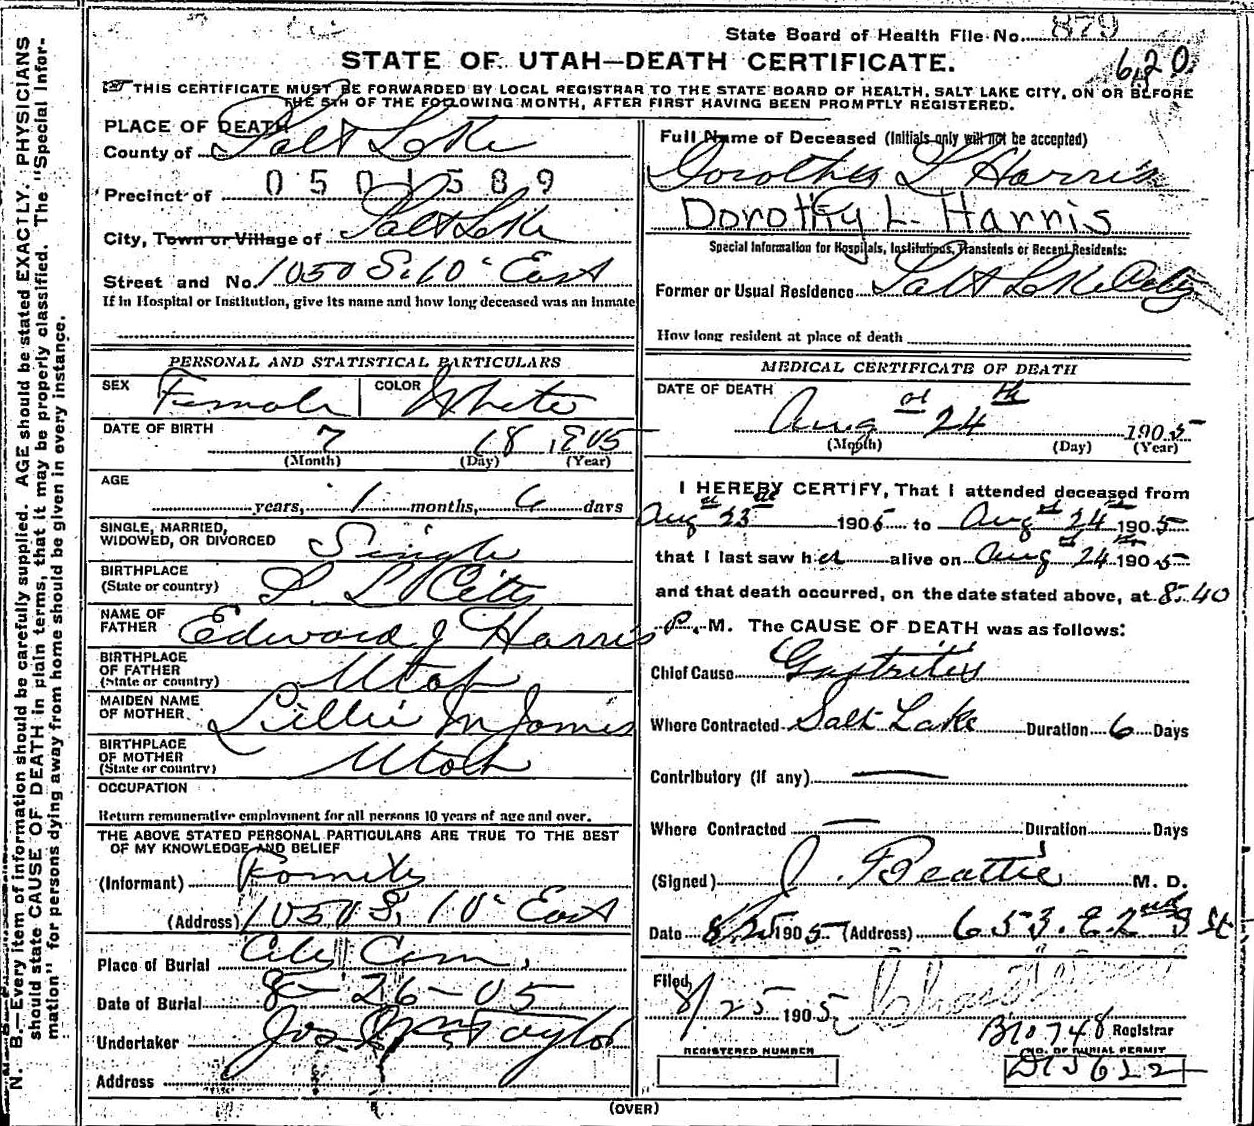 State Board of Health File No. 879
620
STATE OF UTAH—DEATH CERTIFICATE.
THIS CERTIFICATE MUST BE FORWARDED BY LOCAL REGISTRAR TO THE STATE BOARD OF HEALTH, SALT LAKE CITY, ON OR BEFORE
THE 5TH OF THE FOLLOWING MONTH, AFTER FIRST HAVING BEEN PROMPTLY REGISTERED.
N. B.—Every item of information should be carefully supplied. AGE should be stated EXACTLY. PHYSICIANS
should state CAUSE OF DEATH in plain terms, that it may be properly classified. The "Special Infor-
mation" for persons dying away from home should be given in every instance.
PLACE OF DEATH
County of Salt Lake
Precinct of 0501589
City, Town or Village of Salt Lake
Street and No. 1050 S. 10" East
If in Hospital or Institution, give its name and how long deceased was an inmate
PERSONAL AND STATISTICAL PARTICULARS
SEX Female COLOR White
DATE OF BIRTH
7 18 1905
(Month) (Day) (Year)
AGE
years, 1 months, 6 days
SINGLE, MARRIED,
WIDOWED, OR DIVORCED Single
BIRTHPLACE
(State or country) S. L. City
NAME OF
FATHER Edward J Harris
BIRTHPLACE
OF FATHER
(State or country) Utah
MAIDEN NAME
OF MOTHER Lillie M
BIRTHPLACE
OF MOTHER
(State or country) Utah
OCCUPATION
Return remunerative employment for all persons 10 years of age and over.
THE ABOVE STATED PERSONAL PARTICULARS ARE TRUE TO THE BEST
OF MY KNOWLEDGE AND BELIEF
(Informant) Family
(Address) 1050 S. 10" East
Place of Burial City Cem.
Date of Burial 8-26-05
Undertaker Jos Wm Taylor
Address
Full Name of Deceased (Initials only will not be accepted)
Dorothy L Harris
Dorothy L. Harris
Special Information for Hospitals, Institutions, Transients or Recent Residents:
Former or Usual Residence Salt Lake City
How long resident at place of death
MEDICAL CERTIFICATE OF DEATH
DATE OF DEATH
Aug st 24 th 1905
(Month) (Day) (Year)
I HEREBY CERTIFY, That I attended deceased from
Aug st 23 1905 to Aug st 24 1905
that I last saw her alive on Aug st 24 1905
and that death occurred, on the date stated above, at 8.40
P. M. The CAUSE OF DEATH was as follows:
Chief Cause Gastritis
Where Contracted Salt Lake Duration 6 Days
Contributory (If any) —
Where Contracted — Duration Days
(Signed) J. Beattie M. D.
Date 8/25 1905 (Address) 653. E 2nd S St
Filed,
8/25 1905
B10748 Registrar
REGISTERED NUMBER
NO. OF BURIAL PERMIT
D15622
(OVER)